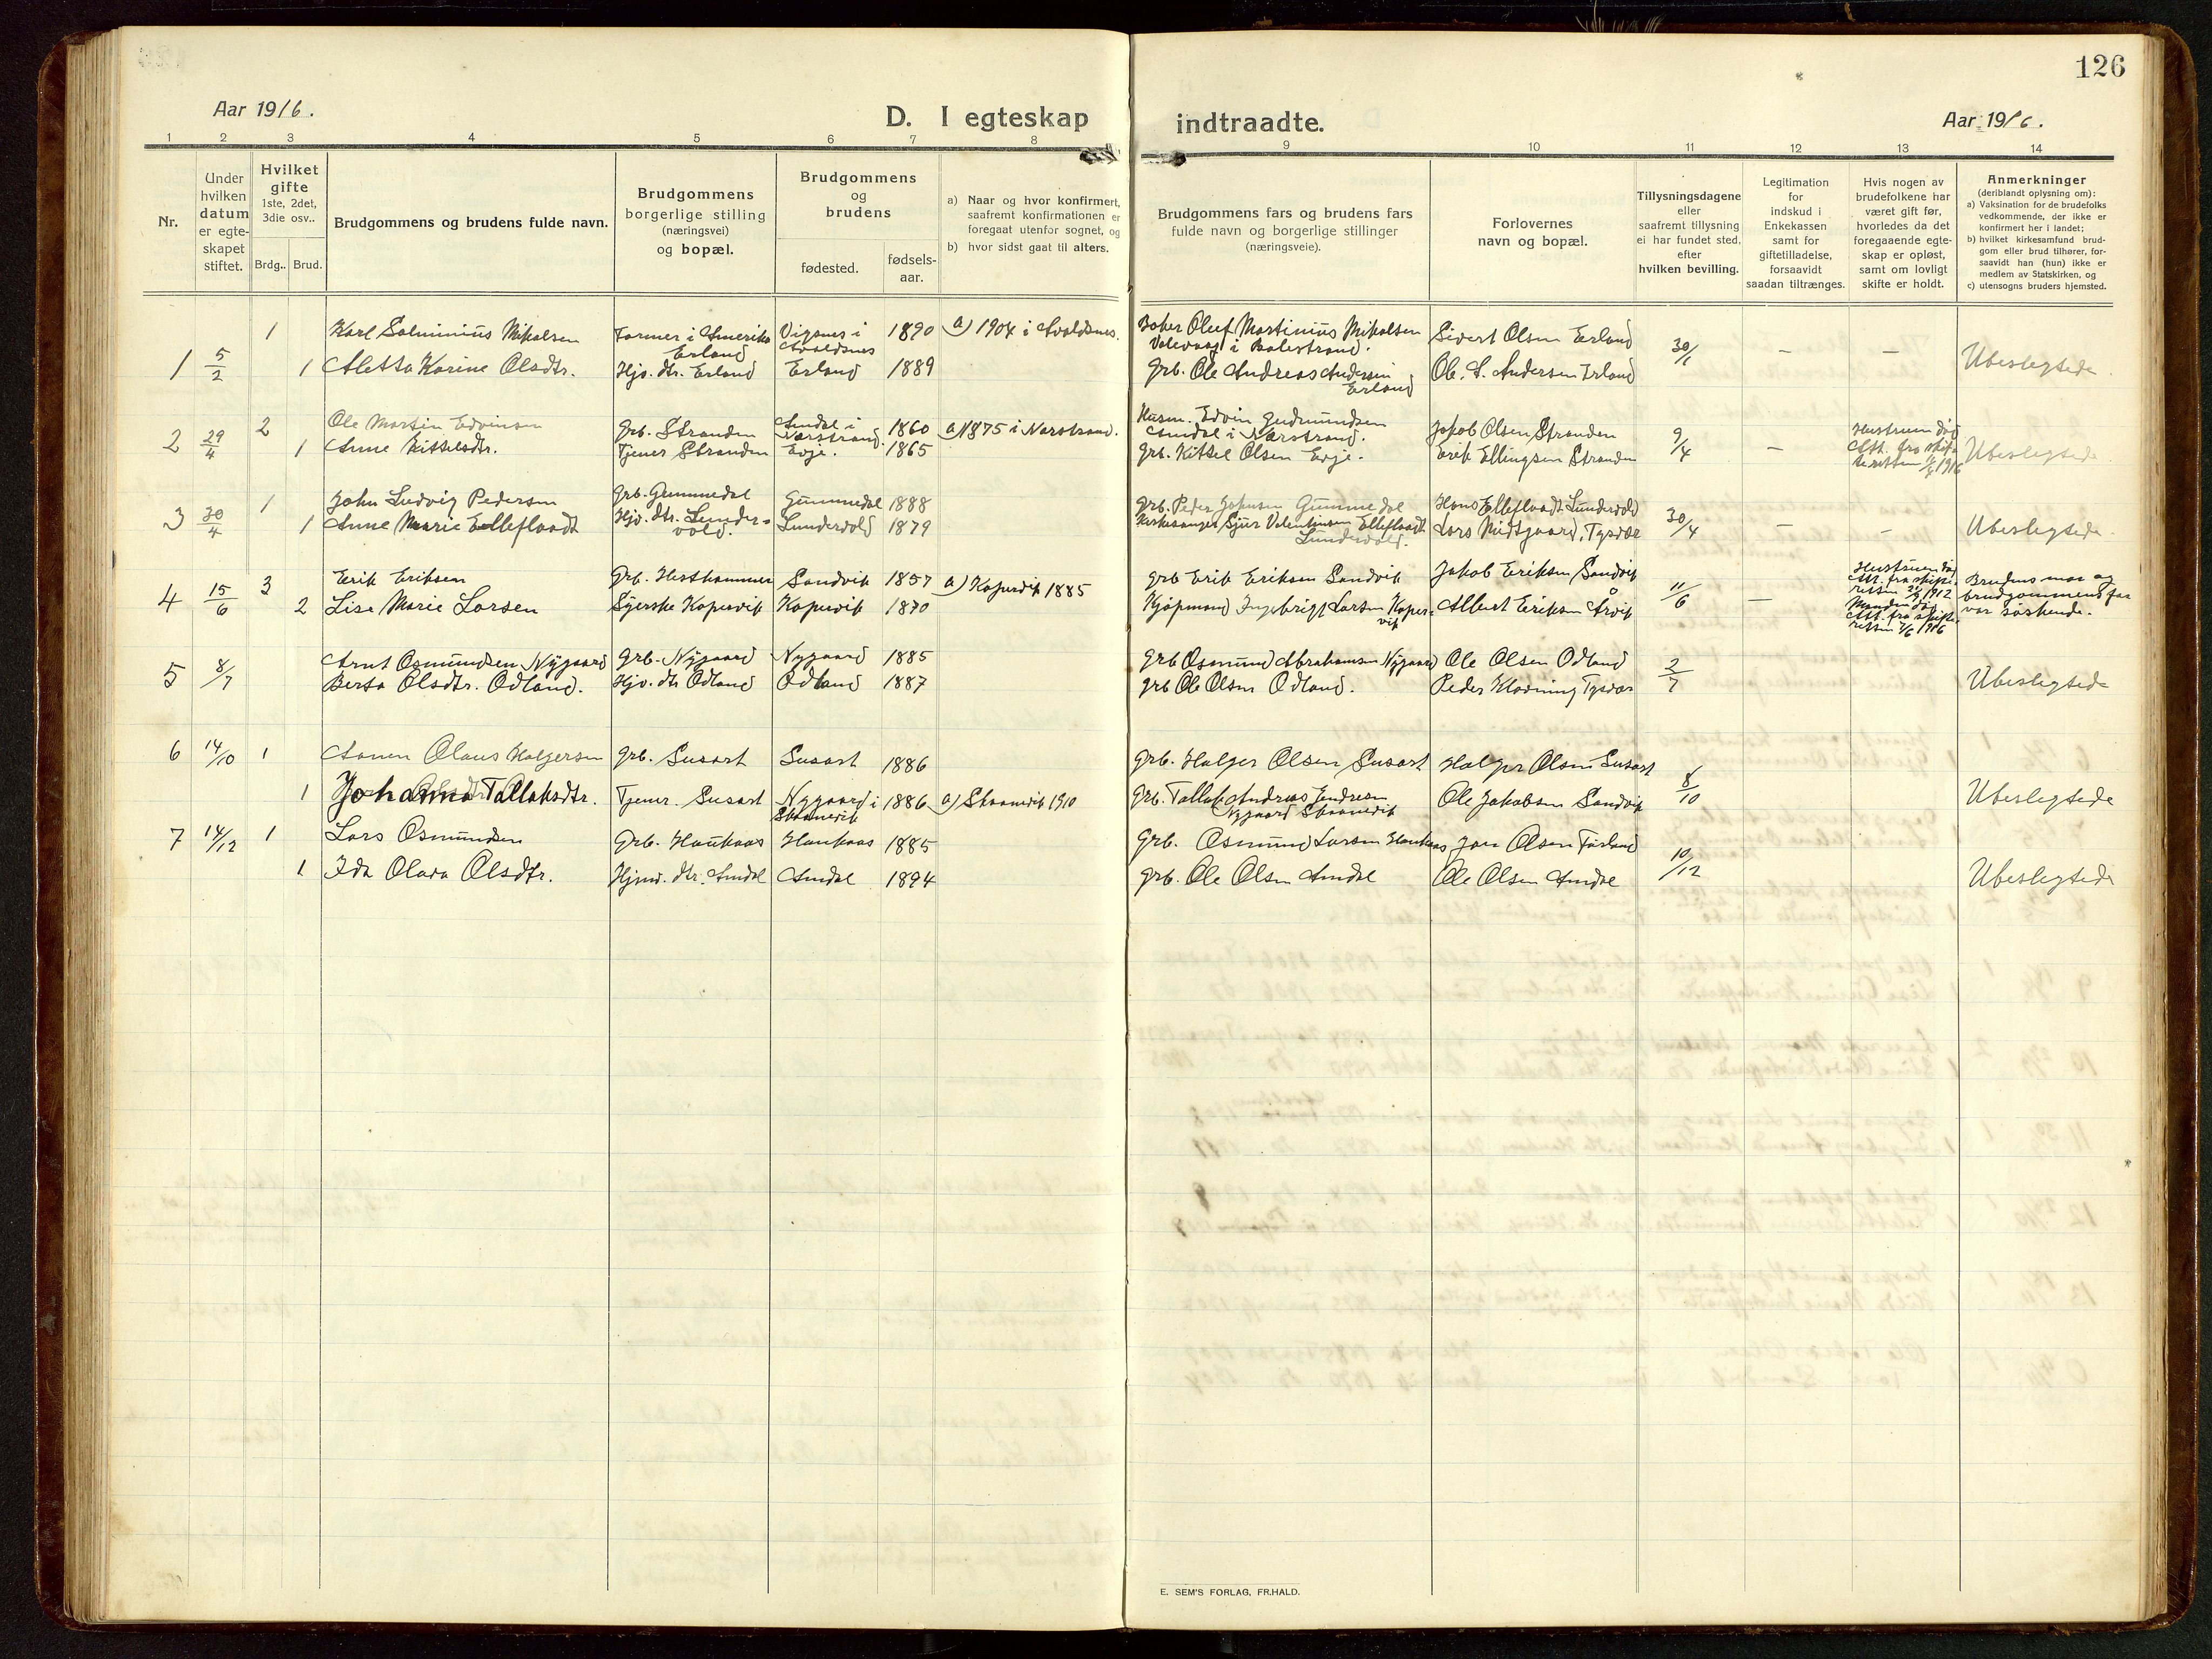 126
Aar 1916.
D. I egteskap indtraadte.
Aar 1916.
1 2 3 4 5 6 7 8 9 10 11 12 13 14
Nr.
Under
hvilken
datum
er egte-
skapet
stiftet.
Hvilket
gifte
1ste, 2det,
3die osv..
Brdg.. Brud.
Brudgommens og brudens fulde navn.
Brudgommens
borgerlige stilling
(næringsvei)
og bopæl.
Brudgommens
og
brudens
fødested.
fødsels-
aar.
a) Naar og hvor konfirmert,
saafremt konfirmationen er
foregaat utenfor sognet, og
b) hvor sidst gaat til alters.
Brudgommens fars og brudens fars
fulde navn og borgerlige stillinger
(næringsveie).
Forlovernes
navn og bopæl.
Tillysningsdagene
eller
saafremt tillysning
ei har fundet sted,
efter
hvilken bevilling.
Legitimation
for
indskud i
Enkekassen
samt for
giftetilladelse,
forsaavidt
saadan tiltrænges.
Hvis nogen av
brudefolkene har
været gift før,
hvorledes da det
foregaaende egte-
skap er opløst,
samt om lovligt
skifte er holdt.
Anmerkninger
(deriblandt oplysning om):
a) Vaksination for de brudefolks
vedkommende, der ikke er
konfirmert her i landet;
b) hvilket kirkesamfund brud-
gom eller brud tilhører, for-
saavidt han (hun) ikke er
medlem av Statskirken, og
c) utensogns bruders hjemsted.
1 5/2
1 Karl Salminius Mikalsen Farmer i Amerika Erland Vigsnes i Avaldsnes 1890 a) 1904 i Avaldsnes. Oluf Martinius Mikalsen Sivert Olsen Erland 30/1 — —
1 Aletta Karine Olsdtr. Hjv. dtr. Erland Erland 1889 Grb. Ole Andreas Andersen Erland Ole. A. Andersen Erland Ubeslegtede.
2 29/4
2 Ole Martin Edvinsen Grb. Stranden Amdal i Nærstrand. 1860 a) 1875 i Nærstrand. Husm. Edvin Gudmundsen Amdal i Nærstrand. Jakob Olsen Stranden 9/4 — Hustruen død
1 Anne Kittelsdtr. Tjener Stranden Evje. 1865 Grb. Kittel Olsen Evje. Erik Ellingsen Stranden Att. fra skifteretten 1916 Ubeslegtede
3 30/4
1 John Ludvig Pedersen Grb. Gummedal Gummedal 1888 Grb. Peder Johnsen Gummedal Hans Elleflaadt Lundervold 30/4 — —
1 Anne Marie Elleflaadt Hjv. dtr. Lundervold. Lundervold 1879 Kirkesanger Sjur Valentinsen Elleflaadt Lundervold. Lars Midtgaard, Tysvær Ubeslegtede.
4 15/6
3 Erik Eriksen Grb. Hesthammer Sandvik 1857 a) Kopervik 1885 Grb Erik Eriksen Sandvik Jakob Eriksen Sandvik 11/6 — Hustruen død Att. fra skifteretten 1912
2 Lise Marie Larsen Syerske Kopervik Kopervik 1870 Kjøpmand Ingebrigt Larsen Kopervik Albert Eriksen Årvik Manden død Att. fra skifteretten 7/6 1916
Brudens mor og
brudgommens far
var søskende.
5 8/7
Arnt Osmundsen Nygaard Grb. Nygaard Nygaard 1885 Grb Osmund Abrahamsen Nygaard Ole Olsen Odland 2/7
Berta Olsdtr. Odland. Hjv. dtr Odland Odland 1887 Grb Ole Olsen Odland. Peder Hovning Tysvær Ubeslegtede
6 14/10
1 Aanen Olaus Halgersen Grb. Susort Susort 1886 Grb. Halger Olsen Susort Halger Olsen Susort 8/10
1 Johanna Tallaksdtr. Tjener. Susort Nygaard i Skaanevik 1886 a) Skaanevik 1910 Grb. Tallak Andreas Endresen Nygaard Skaanevik Ole Jakobsen Sandvik Ubeslegtede
7 14/12
1 Lars Osmundsen Grb. Haukaas Haukaas 1885 Grb. Osmund Larsen Haukaas Jon Olsen Førland 10/12
1 Ida Olava Olsdtr. Hjmv. dtr. Amdal Amdal 1894 Grb. Ole Olsen Amdal Ole Olsen Amdal Ubeslegtede
E. SEM'S FORLAG, FR.HALD.